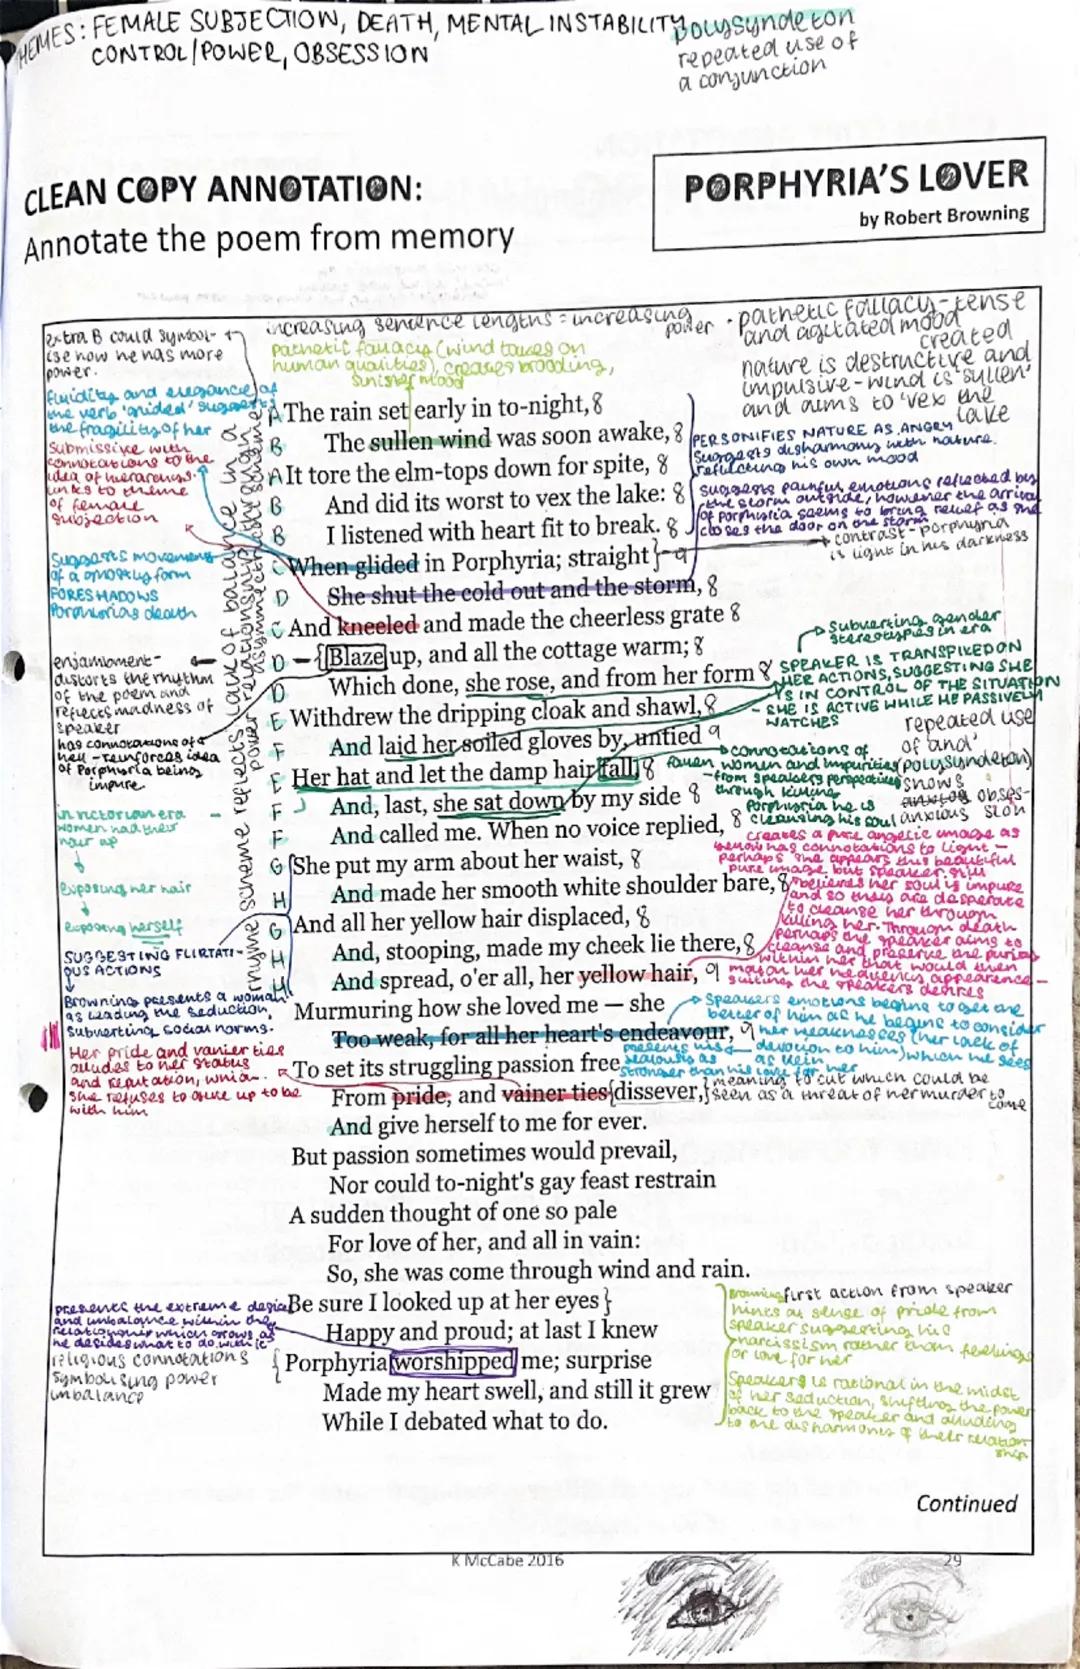 THEMES: FEMALE SUBJECTION, DEATH, MENTAL INSTABILITY
CONTROL/POWER, OBSESSION
polysyndeton
repeated use of
a conjunction
CLEAN COPY ANNOTATION:
Annotate the poem from memory
PORPHYRIA'S LOVER
by Robert Browning
extra B could symbol-
ise how he has more
power.
increasing sentence lengths = increasing
power
pathetic fallacy (wind takes on
human qualities), creates brooding,
sinister mood
pathetic fallacy-tense
and agitated mood
created
nature is destructive and
impulsive-wind is 'sullen'
and aims to 'vex the
lake
fluidity and elegance of
the verb 'glided' suggests
the fragility of her
submissive with
connotations to the
idea of hierarchy.
links to theme
of female
subjection
PERSONIFIES NATURE AS ANGRY
suggests disharmony with nature.
reflecting his own mood
suggests painful emotions reflected by
the storm outside, however the arrival
of Porphyria seems to bring relief as she
closes the door on the storm
contrast-porphyria
is light in his darkness
Suggests movement
of a ghostly form
FORESHADOWS
Porphyrias death
rhyme scheme reflects lack of balance in a
power relationship
asymmetrical rhyme scheme
A The rain set early in to-night, 8
B The sullen wind was soon awake, 8
A It tore the elm-tops down for spite, 8
B And did its worst to vex the lake: 8
B I listened with heart fit to break. 8
C When glided in Porphyria; straight 9
D She shut the cold out and the storm, 8
C And kneeled and made the cheerless grate 8
D Blaze up, and all the cottage warm; 8
D Which done, she rose, and from her form 8
E Withdrew the dripping cloak and shawl, 8
F And laid her soiled gloves by, untied 9
E Her hat and let the damp hair fall, 8
F And, last, she sat down by my side 8
F And called me. When no voice replied, 8
G She put my arm about her waist, 8
H And made her smooth white shoulder bare, 8
G And all her yellow hair displaced, 8
H And, stooping, made my cheek lie there, 8
H And spread, o'er all, her yellow hair, 9
Murmuring how she loved me — she
Too weak, for all her heart's endeavour, 9
To set its struggling passion free
From pride, and vainer ties dissever,
And give herself to me for ever.
But passion sometimes would prevail,
Nor could to-night's gay feast restrain
A sudden thought of one so pale
For love of her, and all in vain:
So, she was come through wind and rain.
Be sure I looked up at her eyes
Happy and proud; at last I knew
Porphyria worshipped me; surprise
Made my heart swell, and still it grew
While I debated what to do.
enjambment-
distorts the rhythm
of the poem and
reflects madness of
speaker
has connotations of
hell-reinforces idea
of Porphyria being
impure
in victorian era
women had their
hair up
exposing her hair
exposing herself
SUGGESTING FLIRTATI-
OUS ACTIONS
Browning presents a woman
as leading the seduction,
subverting social norms.
Her pride and vanier ties
alludes to her status
and reputation, which
she refuses to give up to be
with him
presents the extreme desire
and unbalance within the
relationship which grows as
he decides what to do with it
religious connotations
symbolising power
imbalance
Subverting gender
stereotypes in era
SPEAKER IS TRANSPIRED ON
HER ACTIONS, SUGGESTING SHE
IS IN CONTROL OF THE SITUATION
- SHE IS ACTIVE WHILE HE PASSIVELY
WATCHES
repeated use
of 'and'
(polysyndeton)
shows
obses-
sion
anxious
connotations of
fallen women and impurities
-from speakers perspective
through killing
Porphyria he is
cleansing his soul
creates a pure angelic image as
yellow has connotations to light-
perhaps she appears this beautiful
pure image, but speaker still
believes her soul is impure
and so they are desperate
to cleanse her through
killing her. Through death
perhaps the speaker aims to
cleanse and preserve the purity
within her that would then
match her heavenly appearence-
suiting the speakers desires
Speakers emotions begins to get the
better of him as he begins to consider
her weaknesses (her lack of
devotion to him) which he sees
as vein
presents his
jealousy as
stronger than his love for her
meaning to cut which could be
seen as a threat of her murder to
come
first action from speaker
hints at sense of pride from
speaker suggesting his
narcissism rather than feelings
or love for her
Speaker is rational in the midst
of her seduction, shifting the power
back to the speaker and alluding
to the disharmony of their relation-
ship
Continued
K McCabe 2016
29